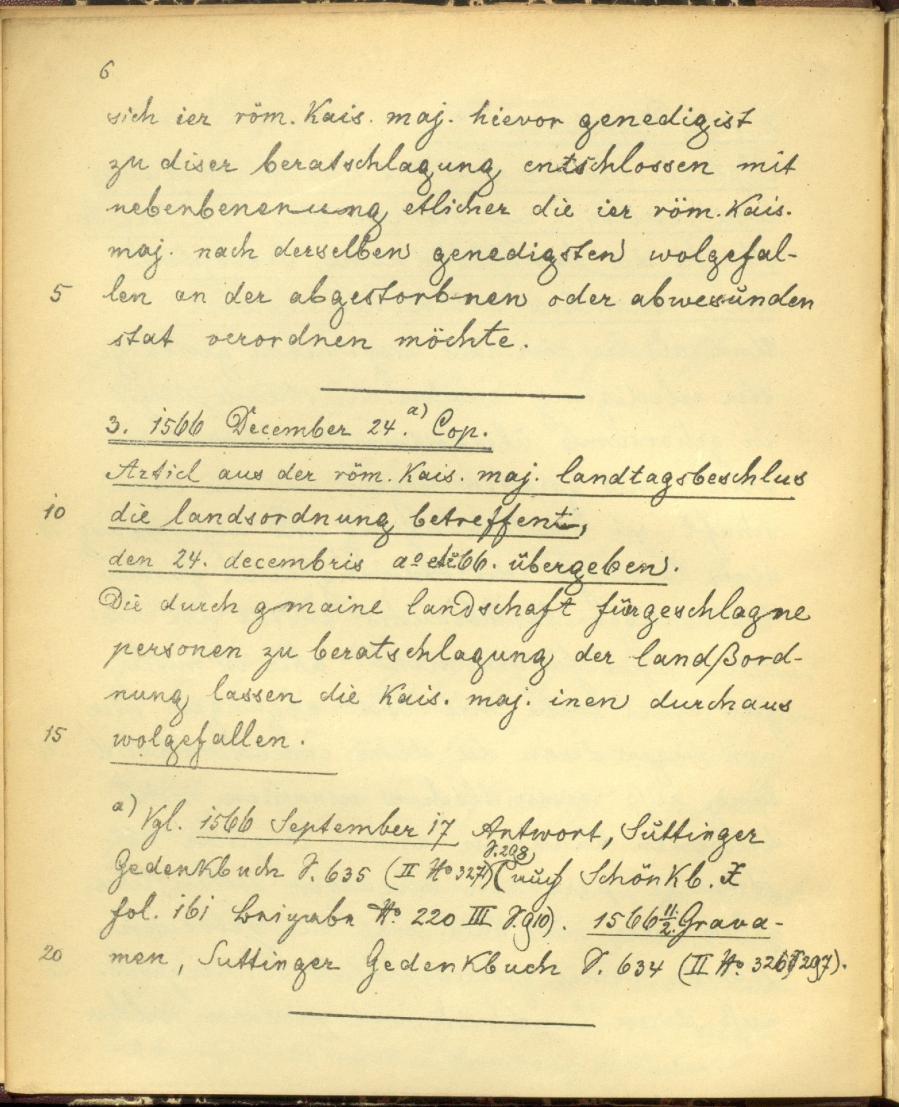 6
sich ier röm. Kais. maj. hievor genedigist
zu diser beratschlagung entschlossen mit
nebenbenenung etlicher die ier röm. Kais.
maj. nach derselben genedigsten wolgefal-
5 len an der abgestorbnen oder abwesunden
stat verordnen möchte.
3. 1566 December 24.a) Cop.
Articl aus der röm. Kais. maj. landtagsbeschlus
10 die landsordnung betreffent,
den 24. decembris ao etc 66. übergeben.
Die durch gmaine landschaft fürgeschlagne
personen zu beratschlagung der landßord-
nung lassen die Kais. maj. inen durchaus
15 wolgefallen.
a) Vgl. 1566 September 17 Antwort, Suttinger
Gedenkbuch S. 635 (II No 327) S. 298 (auch Schönkb. X
fol. 161 Beigabe No. 220 III S. 910). 1566 11/2. Grava-
20 men, Suttinger Gedenkbuch S. 634 (II No 326, S 297).